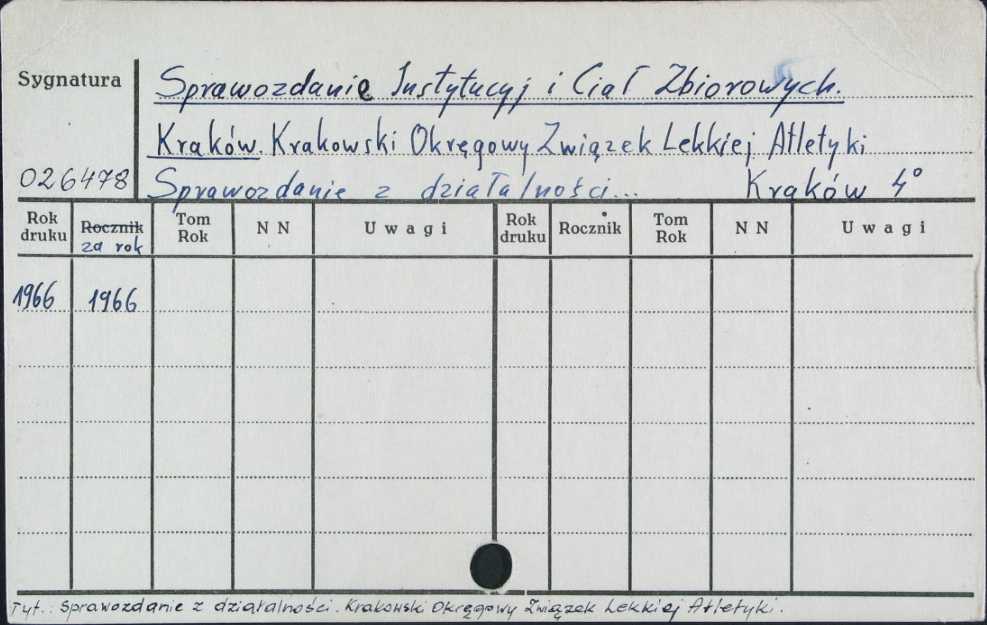 Sygnatura
Sprawozdanie Instytucyj i Ciał Zbiorowych.
Kraków. Krakowski Okręgowy Związek Lekkiej Atletyki
026478
Sprawozdanie z działalności... Kraków 4°
Rok druku Rocznik za rok Tom Rok N N Uwagi Rok druku Rocznik Tom Rok N N Uwagi
1966 1966
Tyt.: Sprawozdanie z działalności. Krakowski Okręgowy Związek Lekkiej Atletyki.